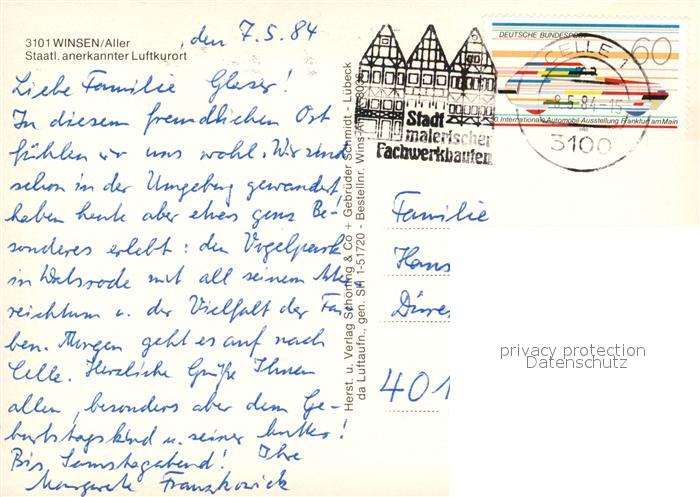 3101 WINSEN/Aller
Staatl. anerkannter Luftkurort
, den 7.5.84
Liebe Familie Glaser!
In diesem freundlichen Ort
fühlen wir uns wohl. Wir sind
schon in der Umgebung gewandert,
haben heute aber etwas ganz Be-
sonderes erlebt: den Vogelpark
in Walsrode mit all seinem Arten-
reichtum u. der Vielfalt der Far-
ben. Morgen geht es auf nach
Celle. Herzliche Grüße Ihnen
allen, besonders aber dem Ge-
burtstagskind u. seiner Mutter!
Bis Samstagabend! Ihre
Margarete
Herst. u. Verlag Schöning & Co + Gebrüder Schmidt - Lübeck
da Luftaufn., gen. SH 1-51720 - Bestellnr. Wins-A
Stadt
malerischer
Fachwerkbauten
DEUTSCHE BUNDESPOST
60
50. Internationale Automobil-Ausstellung Frankfurt am Main
CELLE 1
8.5.84-15
3100
Familie
Hans
Düre
401
privacy protection
Datenschutz